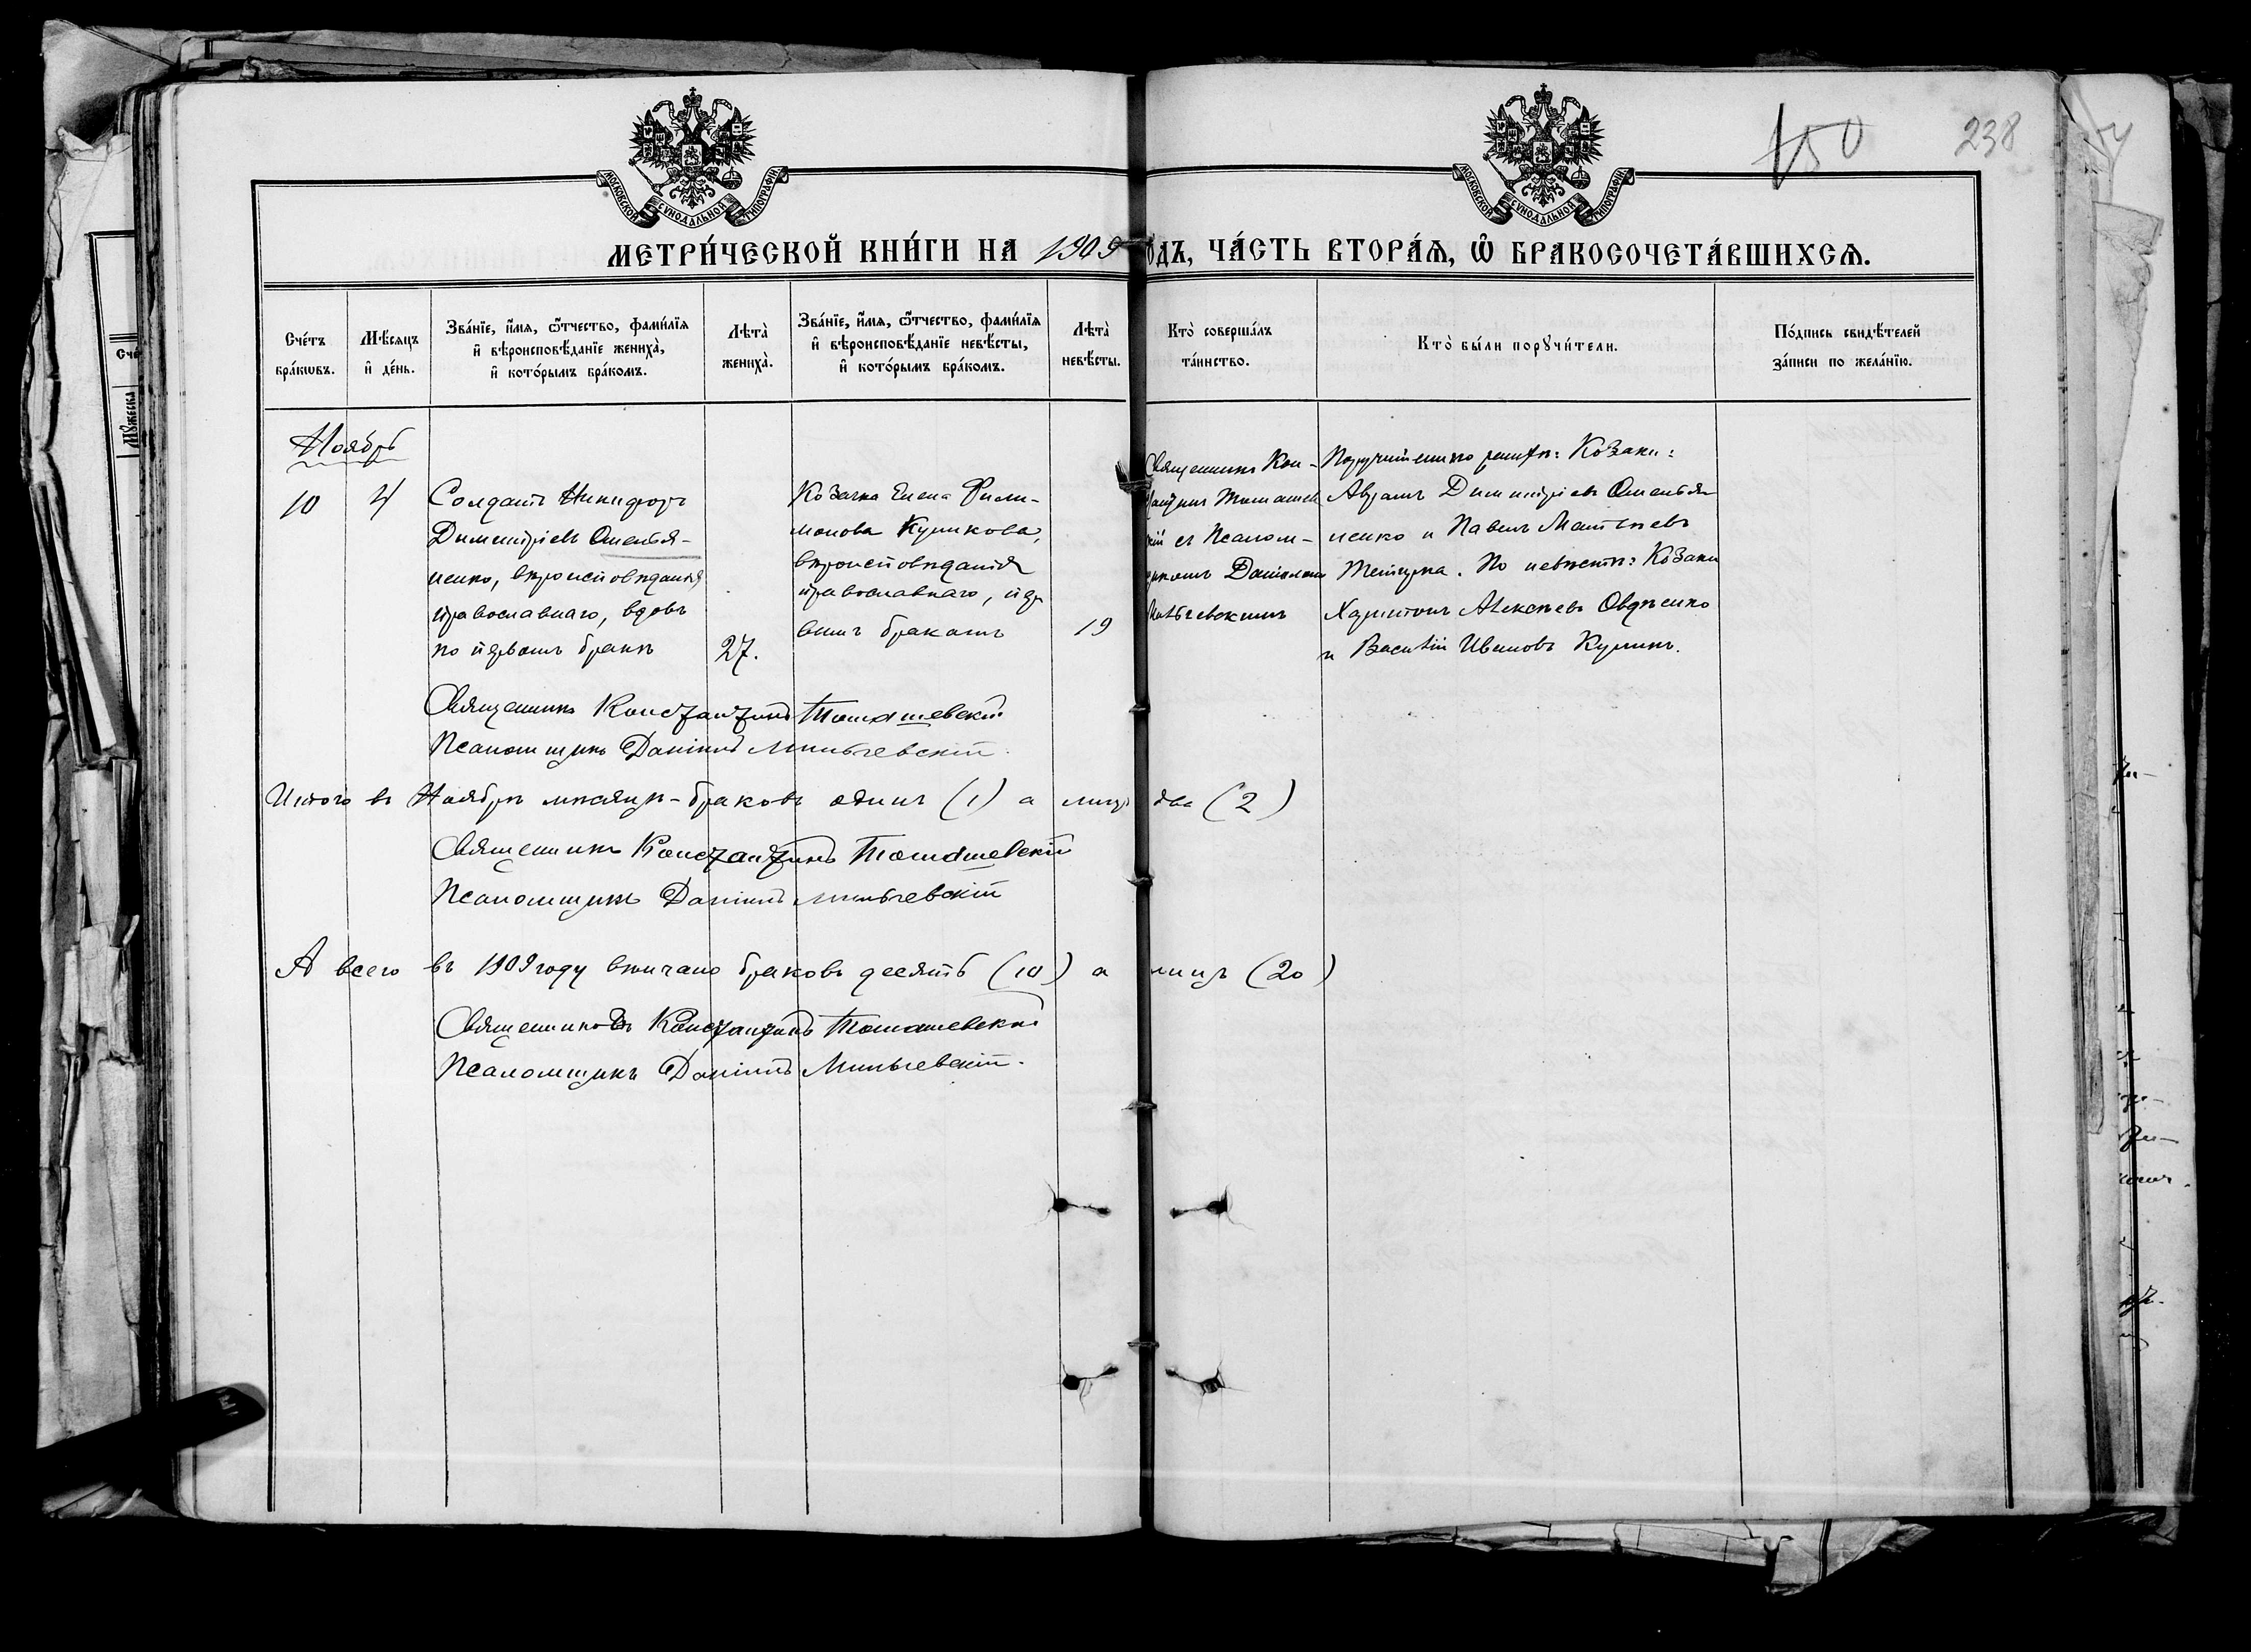 150
238
МОСКОВСКОЙ СѴНОДАЛЬНОЙ ТИПОГРАФІИ
МОСКОВСКОЙ СѴНОДАЛЬНОЙ ТИПОГРАФІИ
МЕТРИ́ЧЕСКОЙ КНИ́ГИ НА 1909 ОДЪ, ЧА́СТЬ ВТОРА́Ѧ, Ѽ БРАКОСОЧЕТА́ВШИХСѦ.
Сче́тъ бра́кѡвъ.
Мѣ́сяцъ и҆ де́нь.
Зва́нїе, и҆́мѧ, ѻ҆́тчество, фами́лїѧ и҆ вѣроисповѣ́данїе жениха̀, и҆ кото́рымъ бра́комъ.
Лѣта̀ жениха̀.
Зва́нїе, и҆́мѧ, ѻ҆́тчество, фами́лїѧ и҆ вѣроисповѣ́данїе невѣ́сты, и҆ кото́рымъ бра́комъ.
Лѣта̀ невѣ́сты.
Кто̀ соверша́лъ та́инство.
Кто̀ бы́ли порꙋчи́тели.
По́дпись свидѣ́телей за́писи по жела́нїю.
Ноябрь
10
4
Солдатъ Никифоръ
Димитріевъ Омелья-
ненко, вѣроисповѣданія
православнаго, вдовъ
по первомъ бракѣ
27.
Козачка Елена Фили-
монова Куликова,
вѣроисповѣданія
православнаго, пер
вымъ бракомъ
19
Священникъ Кон-
Томашев
кій съ Псалом-
щикомъ Даніиломъ
Мильчевскимъ
Поручители по женихѣ: Козаки:
Авраамъ Димитріевъ Омелья
ненко и Павелъ Матѳѣевъ
По невѣстѣ: Козаки
Харитонъ Алексѣевъ Овдѣенко
и Василій Ивановъ Куликъ.
Священникъ Константинъ Томашевскій
Псаломщикъ Даніилъ Мильчевскій.
Итого въ Ноябрѣ мѣсяцѣ - браковъ одинъ (1) а лицъ два (2)
Священникъ Константинъ Томашевскій
Псаломщикъ Даніилъ Мильчевскій
А всего въ 1909 году вѣнчано браковъ десять (10) а лицъ (20)
Священникъ Константинъ Томашевскій
Псаломщикъ Даніилъ Мильчевскій.